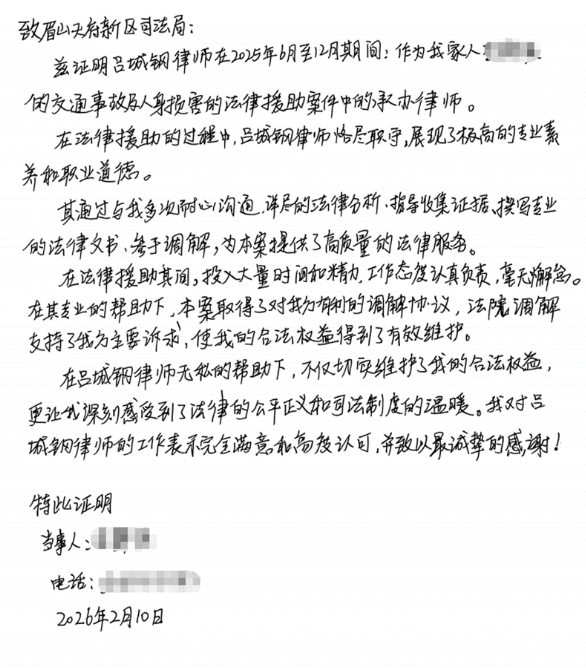 致眉山天府新区司法局:
兹证明吕城钢律师在2025年6月至12月期间:作为我家人
的交通事故及人身损害的法律援助案件中的承办律师。
在法律援助的过程中,吕城钢律师恪尽职守,展现了极高的专业素
养和职业道德。
其通过与我多次耐心沟通,详尽的法律分析、指导收集证据、撰写专业
的法律文书、参于调解,为本案提供了高质量的法律服务。
在法律援助其间,投入大量时间和精力,工作态度认真负责,毫无懈怠。
在其专业的帮助下,本案取得了对我方有利的调解协议,法院调解
支持了我方主要诉求,使我的合法权益得到了有效维护。
在吕城钢律师无私的帮助下,不仅切实维护了我的合法权益,
更让我深刻感受到了法律的公平正义和司法制度的温暖。我对吕
城钢律师的工作表示完全满意和高度认可,并致以最诚挚的感谢!
特此证明
当事人:
电话:
2026年2月10日